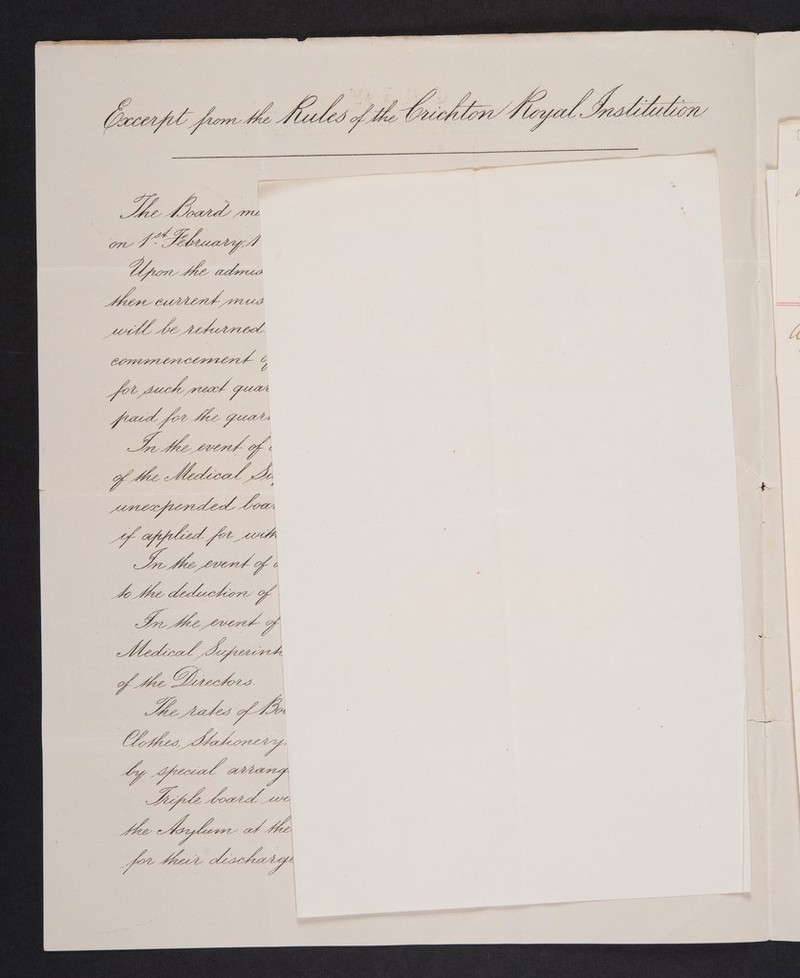 Excerpt from the Rules of the Crichton Royal Institution
The Board
on 1st February, 1
Upon the admis
then current mus
will be returned
commencement
for such next quar
paid for the quar
In the event of
of the Medical Su
unexpended boar
if applied for with
In the event of
to the deduction of
In the event of
Medical Superint
of the Directors.
The rates of Bo
Clothes, Stationery,
by special arrang
Triple board
the Asylum at the
for their discharge